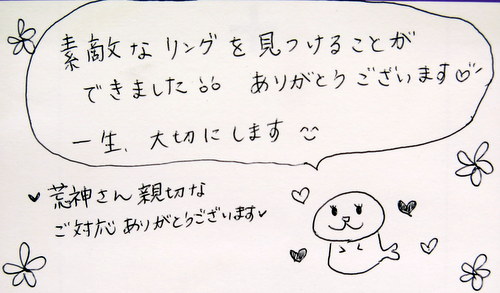 素敵なリングを見つけることが
できました!! ありがとうございます♡
一生、大切にします
♥荒神さん親切な
ご対応ありがとうございます♥